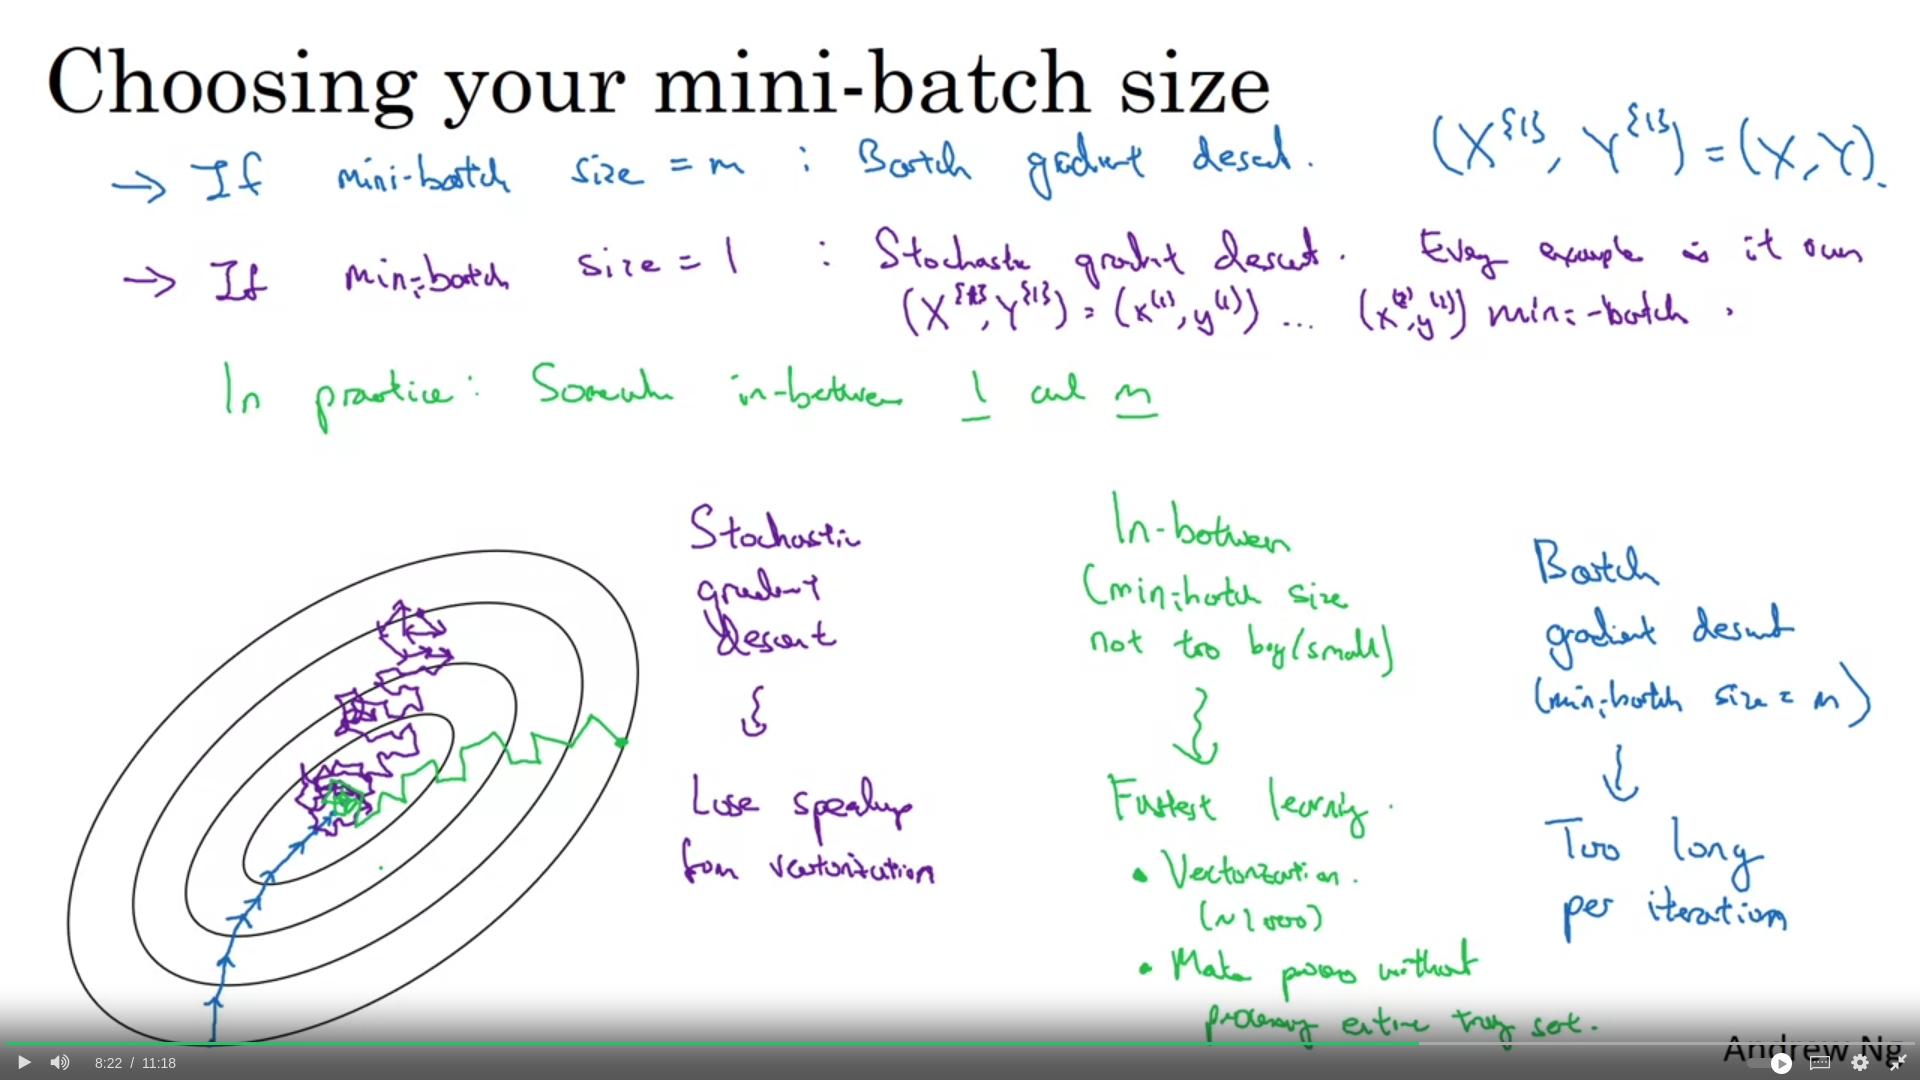 Choosing your mini-batch size
→ If mini-batch size = m : Batch gradient descent. (X^{1}, Y^{1}) = (X, Y).
→ If mini-batch size = 1 : Stochastic gradient descent. Every example is it own
(X^{1}, Y^{1}) = (x^(1), y^(1)) ... (x^(2), y^(2)) mini-batch.
In practice: Somewhere in-between 1 and m
Stochastic
gradient
descent
Lose speedup
from vectorization
In-between
(mini-batch size
not too big/small)
Fastest learning.
• Vectorization.
(~1000)
• Make progress without
processing entire training set.
Batch
gradient descent
(mini-batch size = m)
Too long
per iteration
Andrew Ng
8:22 / 11:18